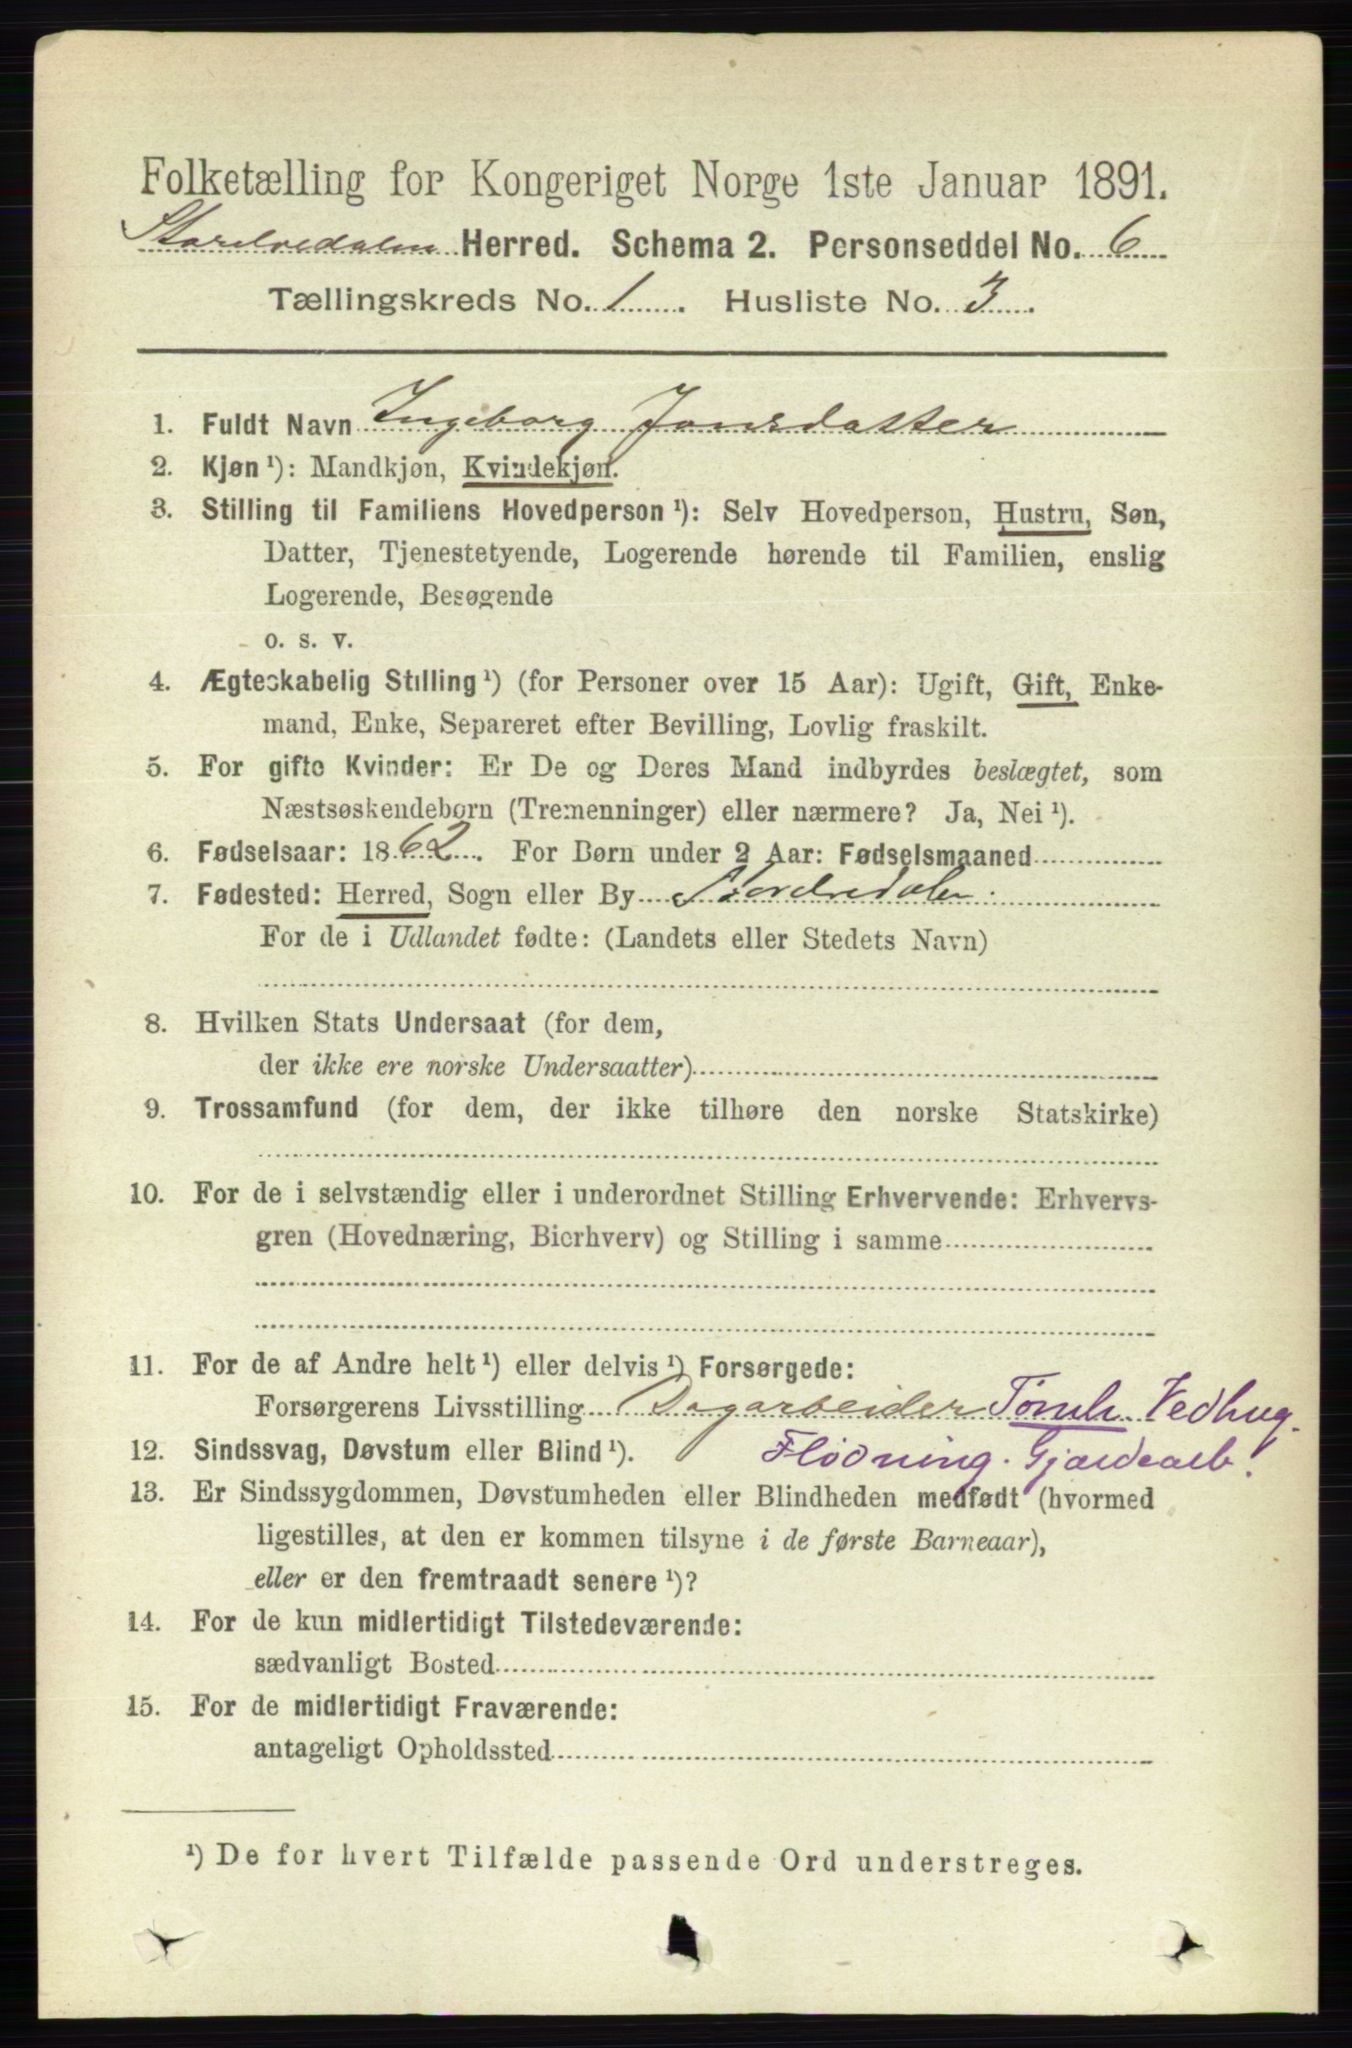 Folketælling for Kongeriget Norge 1ste Januar 1891.
Storelvedalen Herred. Schema 2. Personseddel No. 6
Tællingskreds No. 1. Husliste No. 3.
1. Fuldt Navn Ingeborg Jonsdatter
2. Kjøn ¹): Mandkjøn, Kvindekjøn.
3. Stilling til Familiens Hovedperson ¹): Selv Hovedperson, Hustru, Søn,
Datter, Tjenestetyende, Logerende hørende til Familien, enslig
Logerende, Besøgende
o. s. v.
4. Ægteskabelig Stilling ¹) (for Personer over 15 Aar): Ugift, Gift, Enke-
mand, Enke, Separeret efter Bevilling, Lovlig fraskilt.
5. For gifte Kvinder: Er De og Deres Mand indbyrdes beslægtet, som
Næstsøskendebørn (Tremenninger) eller nærmere? Ja, Nei ¹).
6. Fødselsaar: 1862. For Børn under 2 Aar: Fødselsmaaned
7. Fødested: Herred, Sogn eller By Storelvedalen
For de i Udlandet fødte: (Landets eller Stedets Navn)
8. Hvilken Stats Undersaat (for dem,
der ikke ere norske Undersaatter)
9. Trossamfund (for dem, der ikke tilhøre den norske Statskirke)
10. For de i selvstændig eller i underordnet Stilling Erhvervende: Erhvervs-
gren (Hovednæring, Bierhverv) og Stilling i samme
11. For de af Andre helt ¹) eller delvis ¹) Forsørgede:
Forsørgerens Livsstilling Dagarbeider Tømh. Vedhug.
12. Sindssvag, Døvstum eller Blind ¹). Flødning. Gjærdearb.
13. Er Sindssygdommen, Døvstumheden eller Blindheden medfødt (hvormed
ligestilles, at den er kommen tilsyne i de første Barneaar),
eller er den fremtraadt senere ¹)?
14. For de kun midlertidigt Tilstedeværende:
sædvanligt Bosted
15. For de midlertidigt Fraværende:
antageligt Opholdssted
¹) De for hvert Tilfælde passende Ord understreges.